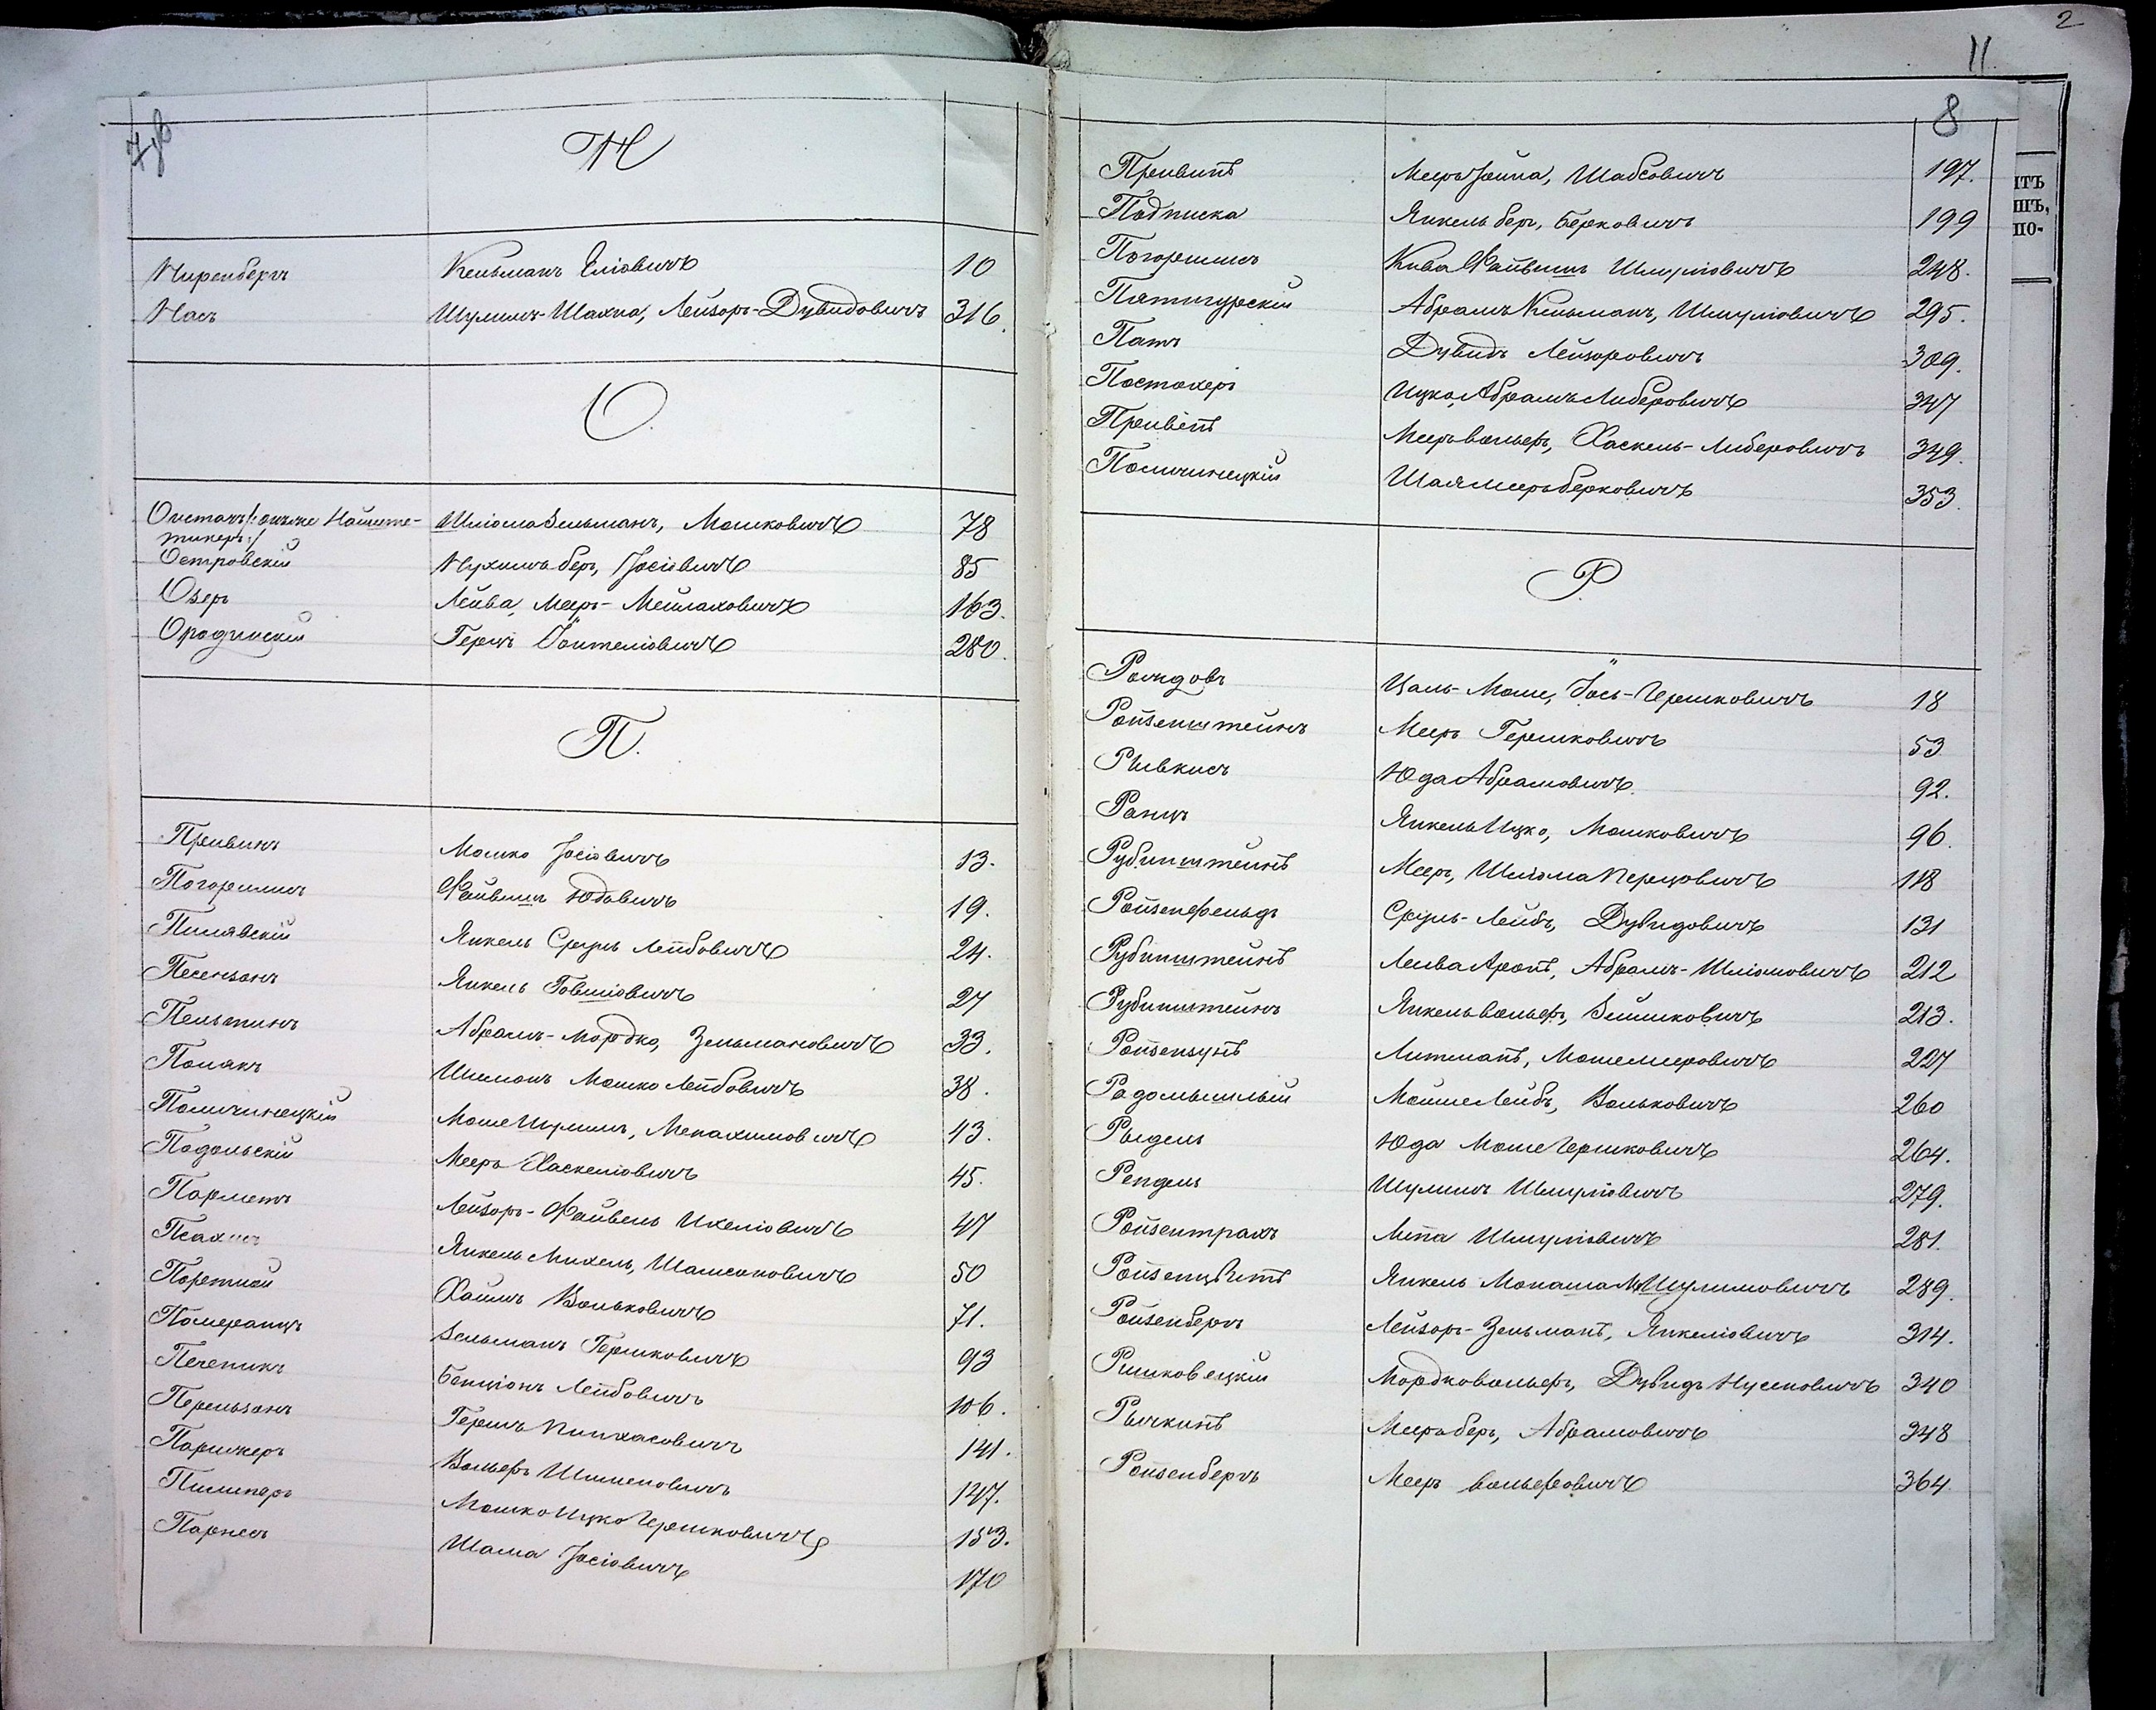 2
11
8
Н
Ниренбергъ Кельманъ Еліовичъ 10
Насъ Шулимъ-Шахна, Лейзоръ-Дувидовичъ 316.
О.
Шліома Зельманъ, Мошковичъ 78
Островскій Нухимъ беръ, Іосіовичъ 85
Озеръ Лейва, Мееръ-Мейлаховичъ 163.
Герцъ 280.
П.
Превинъ Мошко Іосіовичъ 13.
Погорилишъ Файвишъ Юдовичъ 19.
Пилявскій Янкель Сруль Лейбовичъ 24.
Песензонъ Янкель Говшіовичъ 27
Пельтинъ Абрамъ-Мордко, Зельмановичъ 33.
Полякъ Шимонъ Мошко Лейбовичъ 38.
Поличинецкій Моше Шулимъ, Менахимовичъ 43.
Подольскій Мееръ Хаскеліовичъ 45.
Парметъ Лейзоръ-Файвель Ихеліовичъ 47
Янкель Михель, Шамсоновичъ 50
Портной Хаимъ Вольковичъ 71.
Померанцъ Зельманъ Гершковичъ 93
Печеникъ Бенціонъ Лейбовичъ 106.
Перельзонъ Гершъ Пинхасовичъ 141.
Парижеръ Вольфъ Шимоновичъ 147.
Мошко Ицко Гершковичъ 153.
Парнесъ Шама Іосіовичъ 170
Превинъ Мееръ Іойна, Шабсовичъ 197.
Подписка Янкель беръ, Берковичъ 199
Погорилишъ Кива Файвишъ Шмуліовичъ 248.
Пятигурскій Абрамъ Кельманъ, Шмуліовичъ 295.
Патъ Дувидъ Лейзоровичъ 309.
Постохеръ Ицко, Абрамъ Либеровичъ 347
Превенъ Мееръ вольфъ, Хаскель-Либеровичъ 349.
Поличинецкій Шая Мееръ Берковичъ 353.
Р.
Цаль-Моше, Іось-Гершковичъ 18
Ройзенштейнъ Мееръ Гершковичъ 53
Рывкисъ Юда Абрамовичъ 92.
Ранцъ Янкель Ицко, Мошковичъ 96.
Рубинштейнъ Мееръ, Шліома Перцовичъ 118
Ройзенфельдъ Сруль-Лейбъ, Дувидовичъ 131
Рубинштейнъ Лейва Аронъ, Абрамъ-Шліомовичъ 212
Рубинштейнъ Янкель вольфъ, Зейликовичъ 213.
Ройзензунъ Литманъ, Моше Мееровичъ 227
Радомысльскій Мойше Лейбъ, Вольковичъ 260
Рыдель Юда Моше Гершковичъ 264.
Рендель Шулимъ Шмуліовичъ 279.
Ройзентрахъ Липа Шмуліовичъ 281.
Ройзенцвитъ Янкель Монаша Шулимовичъ 289.
Ройзенбергъ Лейзоръ-Зельманъ, Янкеліовичъ 314.
Ришковецкій Мордко вольфъ, Дувидъ Нусеновичъ 340
Рычкинъ Мееръ беръ, Абрамовичъ 348
Ройзенбергъ Мееръ Вольфовичъ 364.
ИТЪ
ШЪ,
ПО-